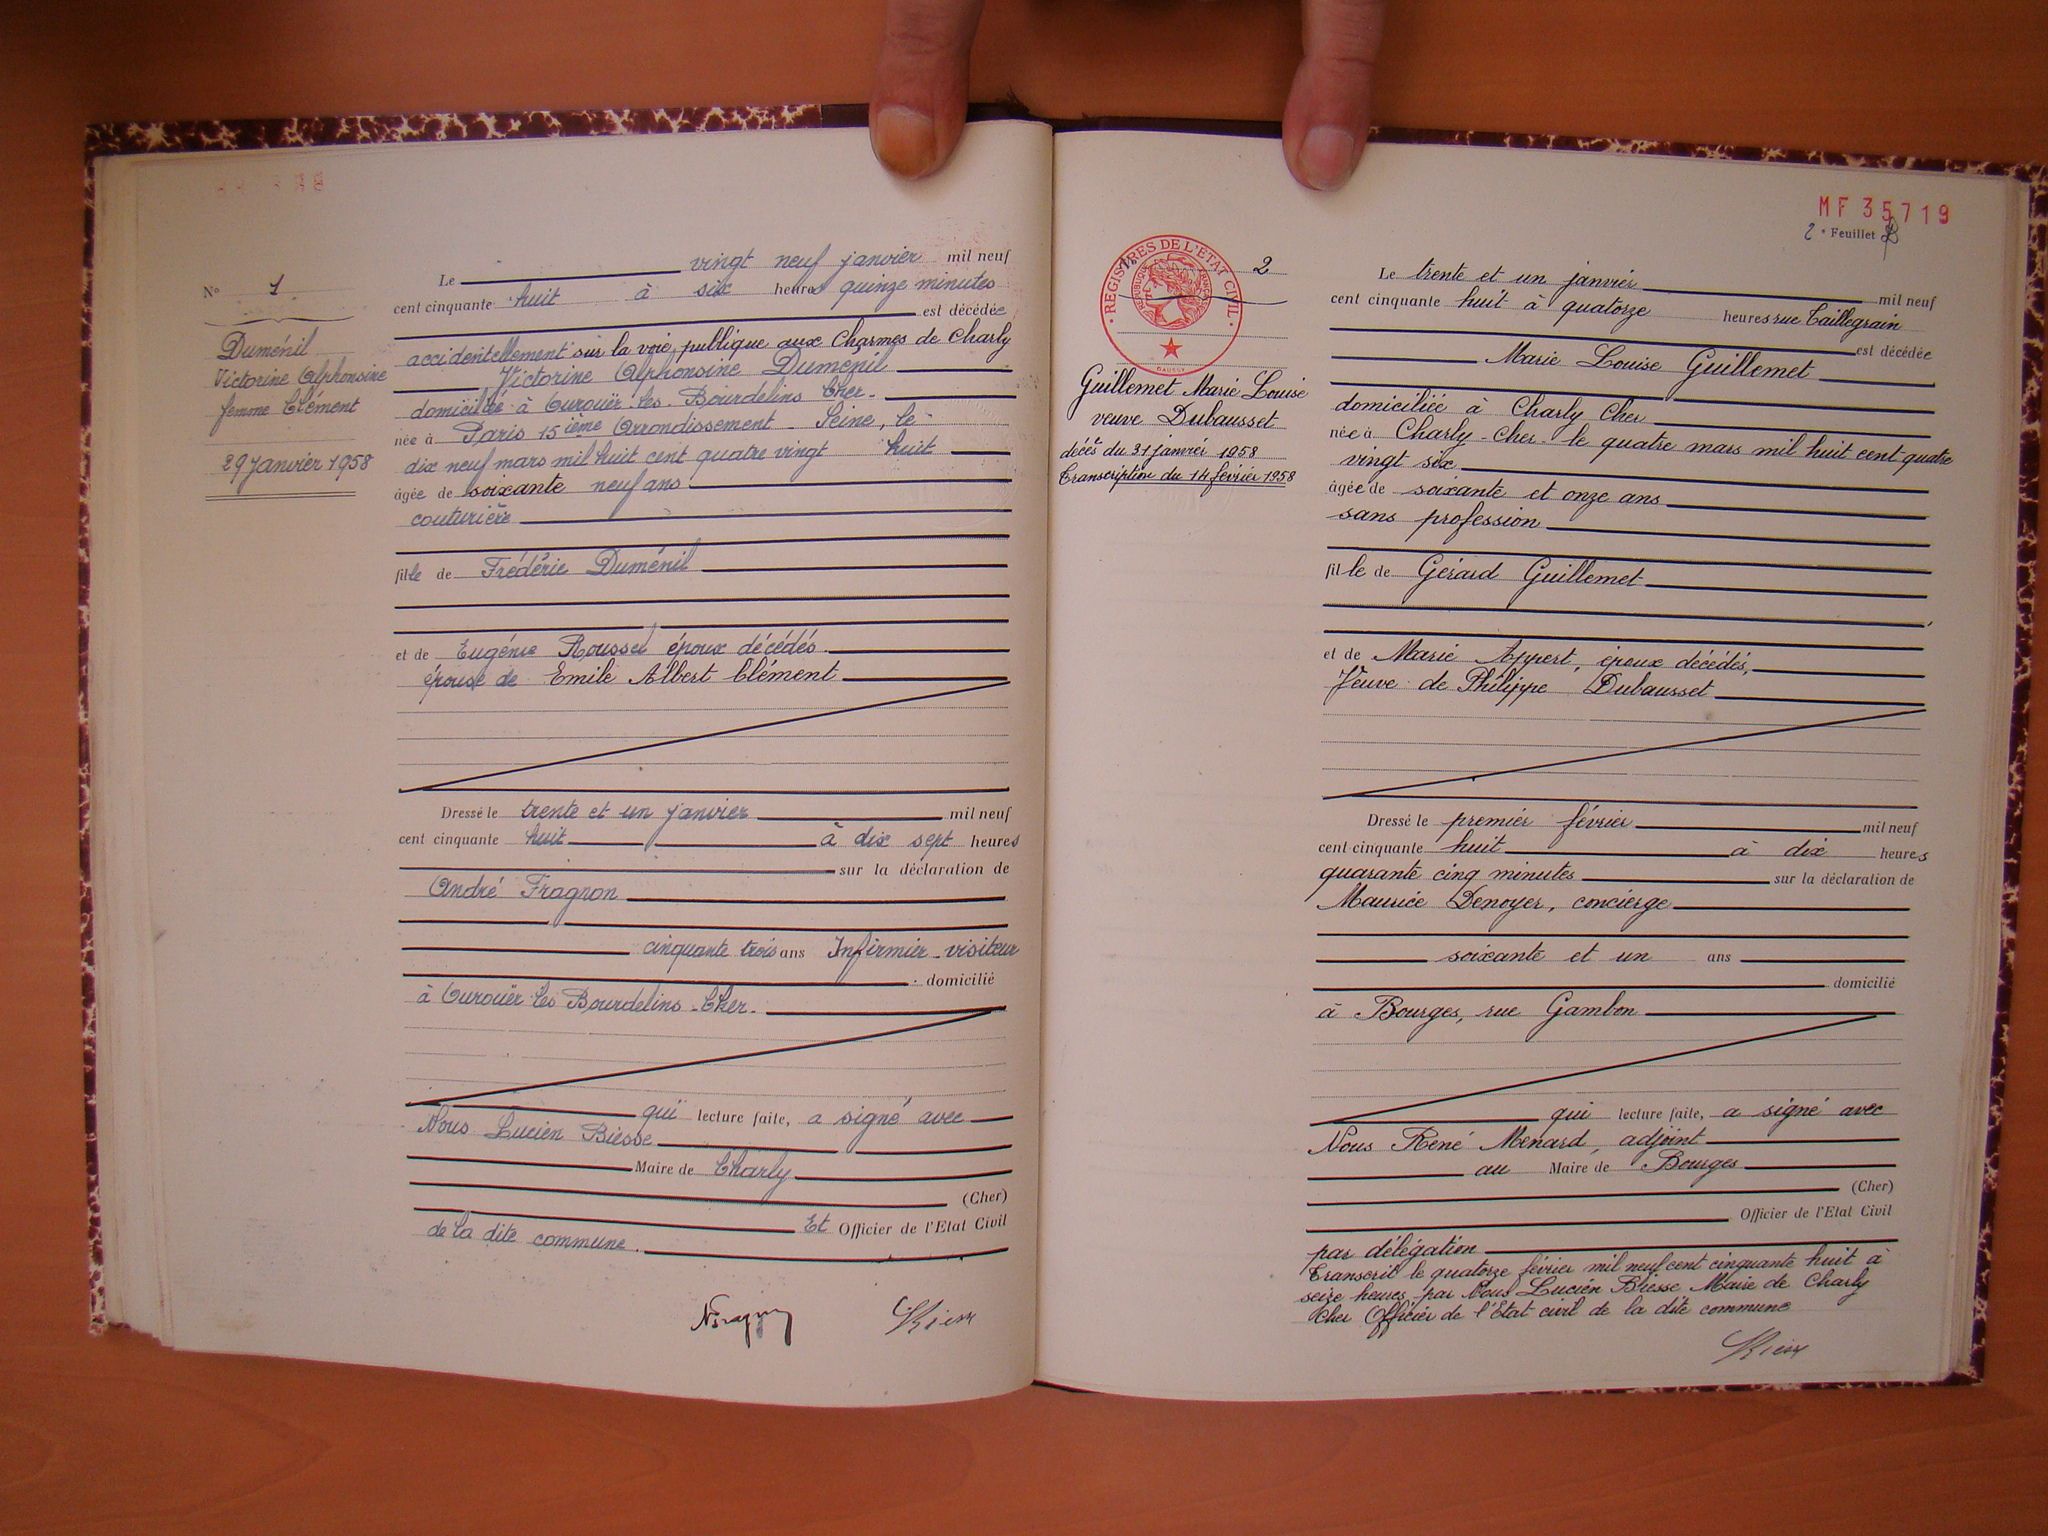 N° 1
Duménil
Victorine Alphonsine
femme Clément
29 Janvier 1958
Le vingt neuf janvier mil neuf
cent cinquante huit à six heures quinze minutes
est décédée
accidentellement sur la voie publique aux Charmes de Charly
Victorine Alphonsine Duménil
domiciliée à Ourouër les Bourdelins Cher
née à Paris 15ième Arrondissement Seine, le
dix neuf mars mil huit cent quatre vingt huit
âgée de soixante neuf ans
couturière
fille de Frédéric Duménil
et de Eugénie Roussel époux décédés
épouse de Emile Albert Clément
Dressé le trente et un janvier mil neuf
cent cinquante huit à dix sept heures
sur la déclaration de
André Fragnon
cinquante trois ans Infirmier-visiteur
domicilié
à Ourouër les Bourdelins - Cher
qui lecture faite, a signé avec
Nous Lucien Biesse
Maire de Charly
(Cher)
Et Officier de l'Etat Civil
de la dite commune.
MF 35719
2e Feuillet
REGISTRES DE L'ÉTAT CIVIL
2
Guillemet Marie Louise
veuve Dubausset
décès du 31 janvier 1958
Transcription du 14 février 1958
Le trente et un janvier mil neuf
cent cinquante huit à quatorze heures rue Taillegrain
est décédée
Marie Louise Guillemet
domiciliée à Charly Cher
née à Charly - Cher - le quatre mars mil huit cent quatre
vingt six
âgée de soixante et onze ans
sans profession
fille de Gérard Guillemet
et de Marie Appert, époux décédés,
Veuve de Philippe Dubausset
Dressé le premier février mil neuf
cent cinquante huit à dix heures
quarante cinq minutes sur la déclaration de
Maurice Denoyer, concierge
soixante et un ans
domicilié
à Bourges, rue Gambon
qui lecture faite, a signé avec
Nous René Menard, adjoint
au Maire de Bourges
(Cher)
Officier de l'Etat Civil
par délégation
Transcrit le quatorze février mil neuf cent cinquante huit à
seize heures par Nous Lucien Biesse Maire de Charly
Cher Officier de l'Etat civil de la dite commune